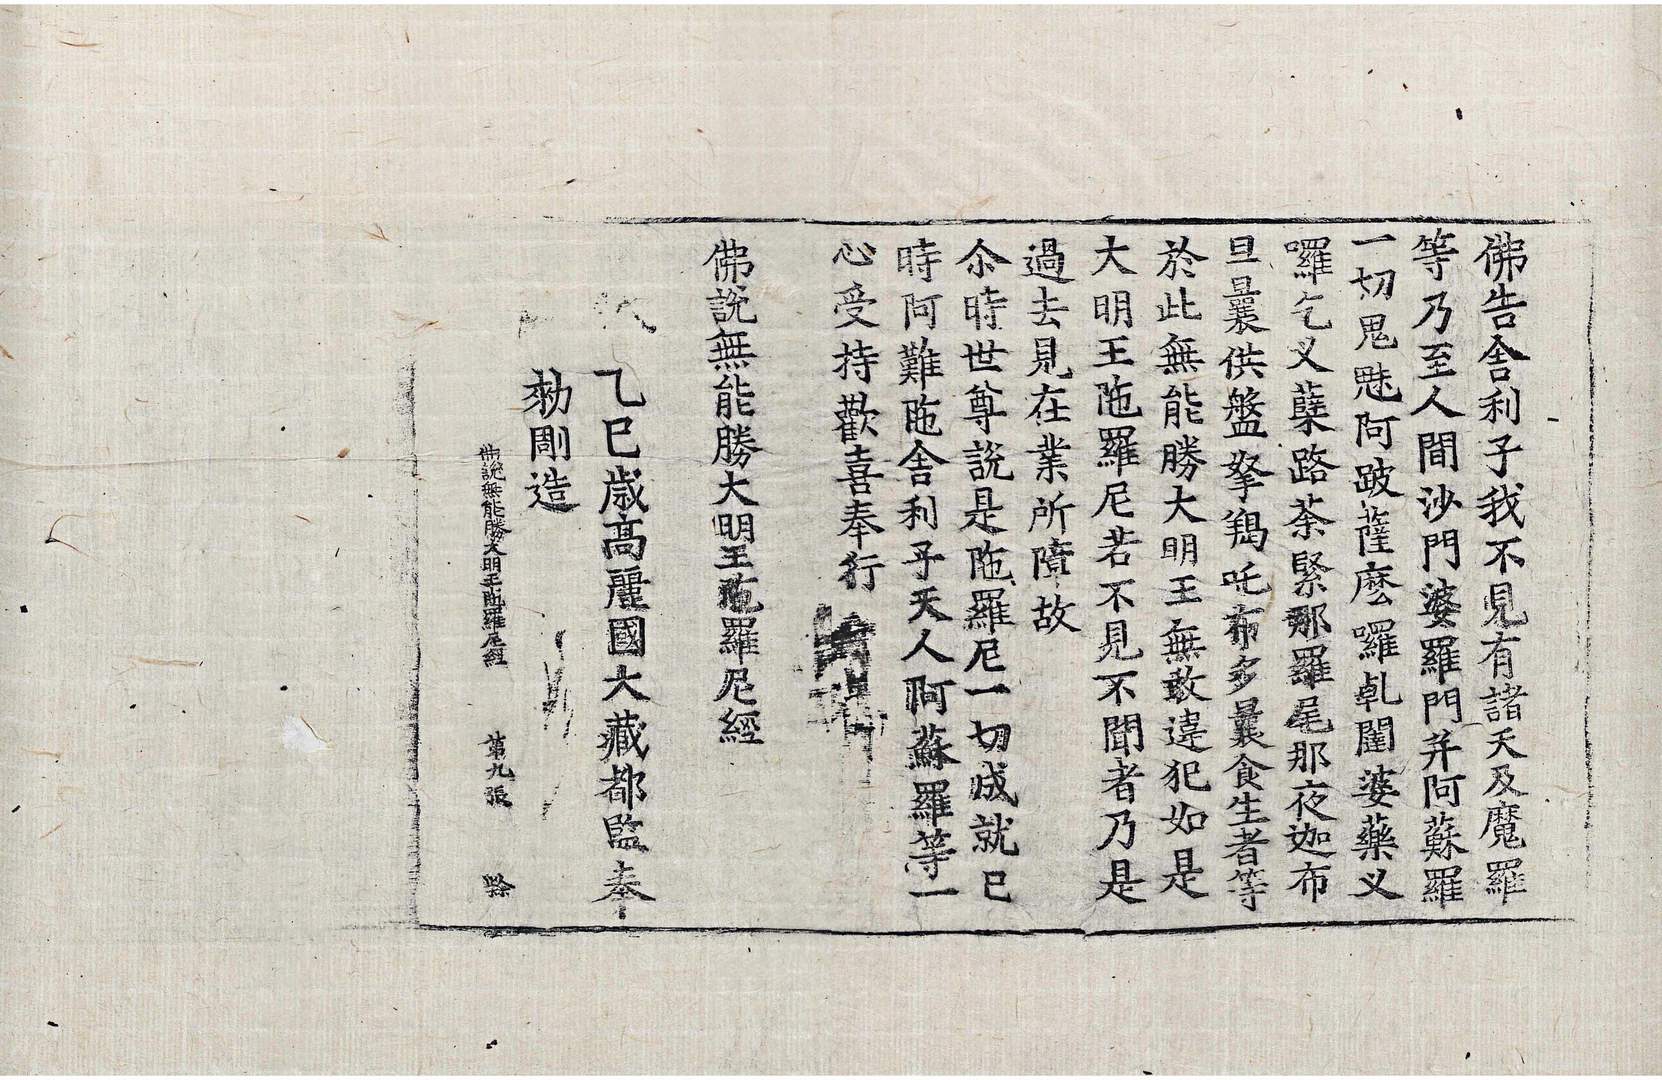 佛告舍利子我不見有諸天及魔羅
等乃至人間沙門婆羅門并阿蘇羅
一切鬼魅阿跛薩麽囉乹闥婆藥叉
囉乞叉蘖路荼緊那羅尾那夜迦布
旦曩供盤拏羯吒布多曩食生者等
於此無能勝大明王無敢違犯如是
大明王陁羅尼若不見不聞者乃是
過去見在業所障故
尒時世尊說是陁羅尼一切成就已
時阿難陁舍利子天人阿蘇羅等一
心受持歡喜奉行
佛說無能勝大明王陁羅尼經
乙巳歲高麗國大藏都監奉
勑彫造
佛說無能勝大明王陁羅尼經 第九張